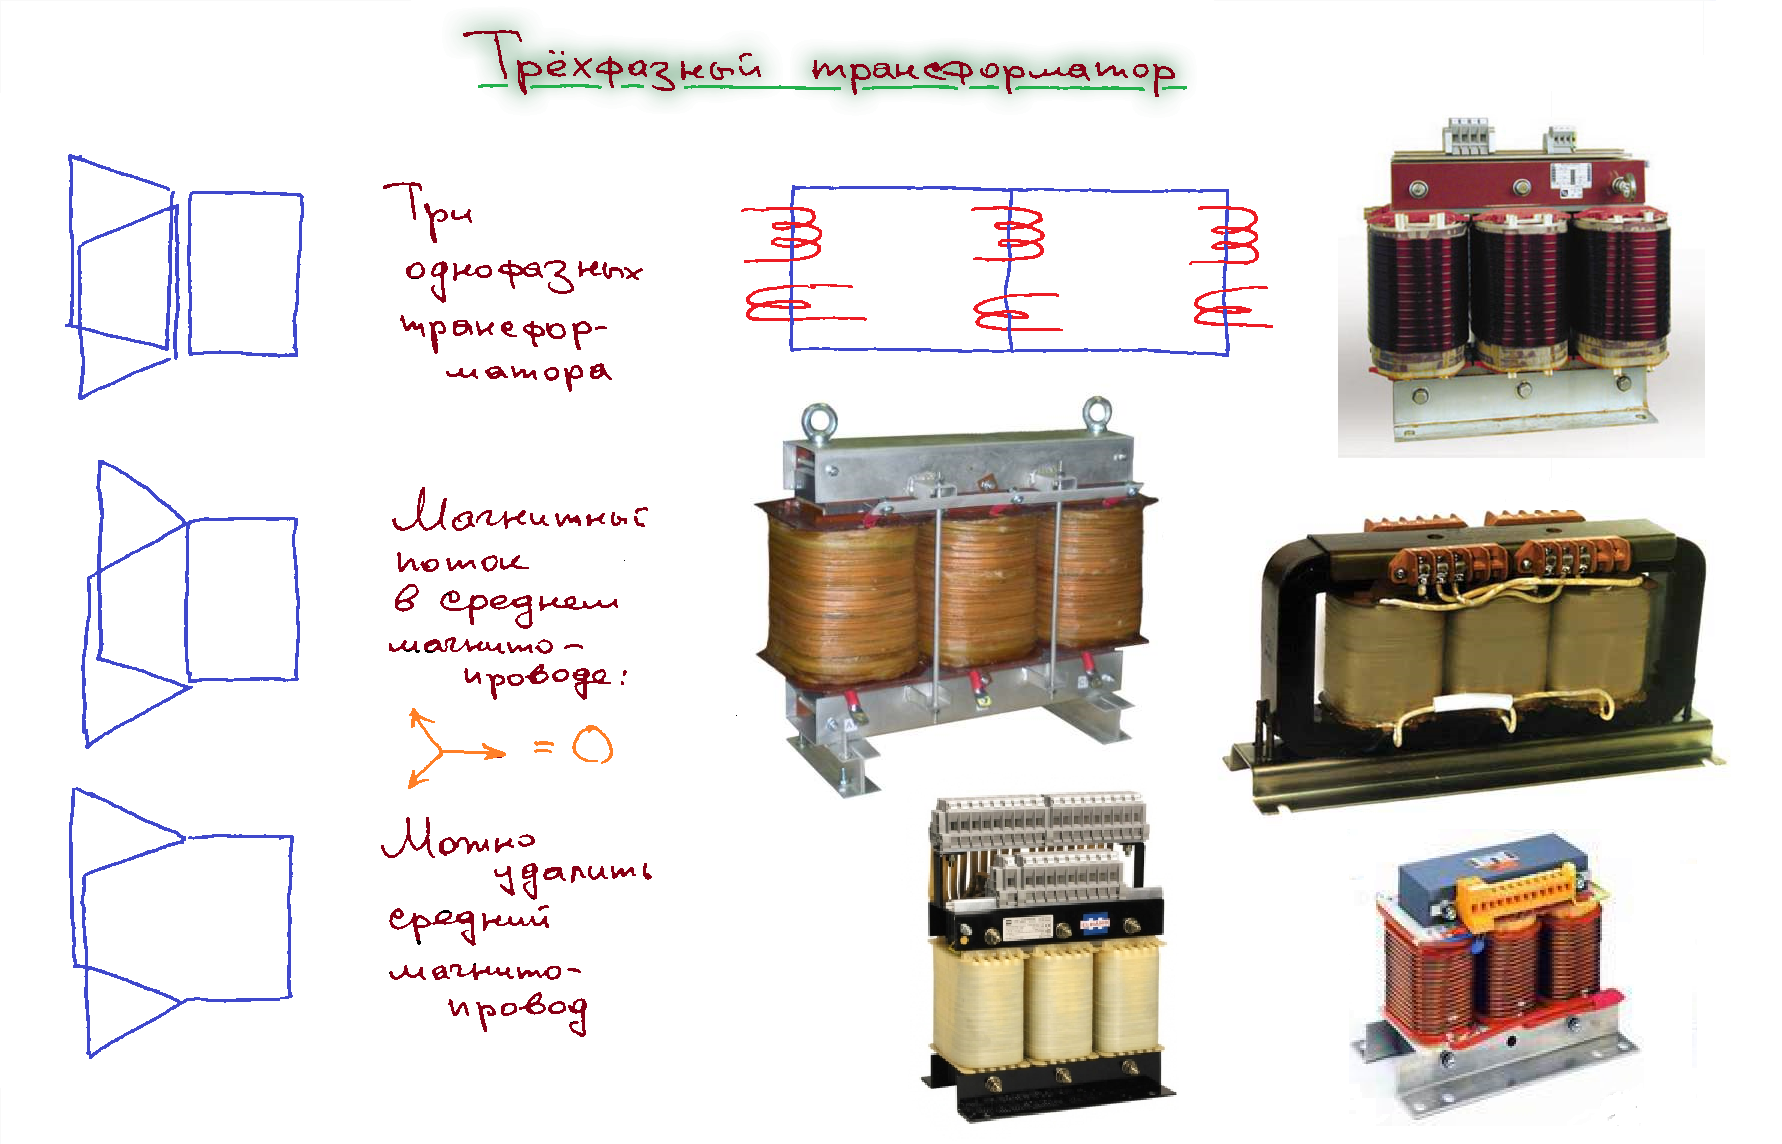 Трёхфазный трансформатор
Три
однофазных
трансфор-
матора
Магнитный
поток
в среднем
магнито-
проводе:
= 0
Можно
удалить
средний
магнито-
провод